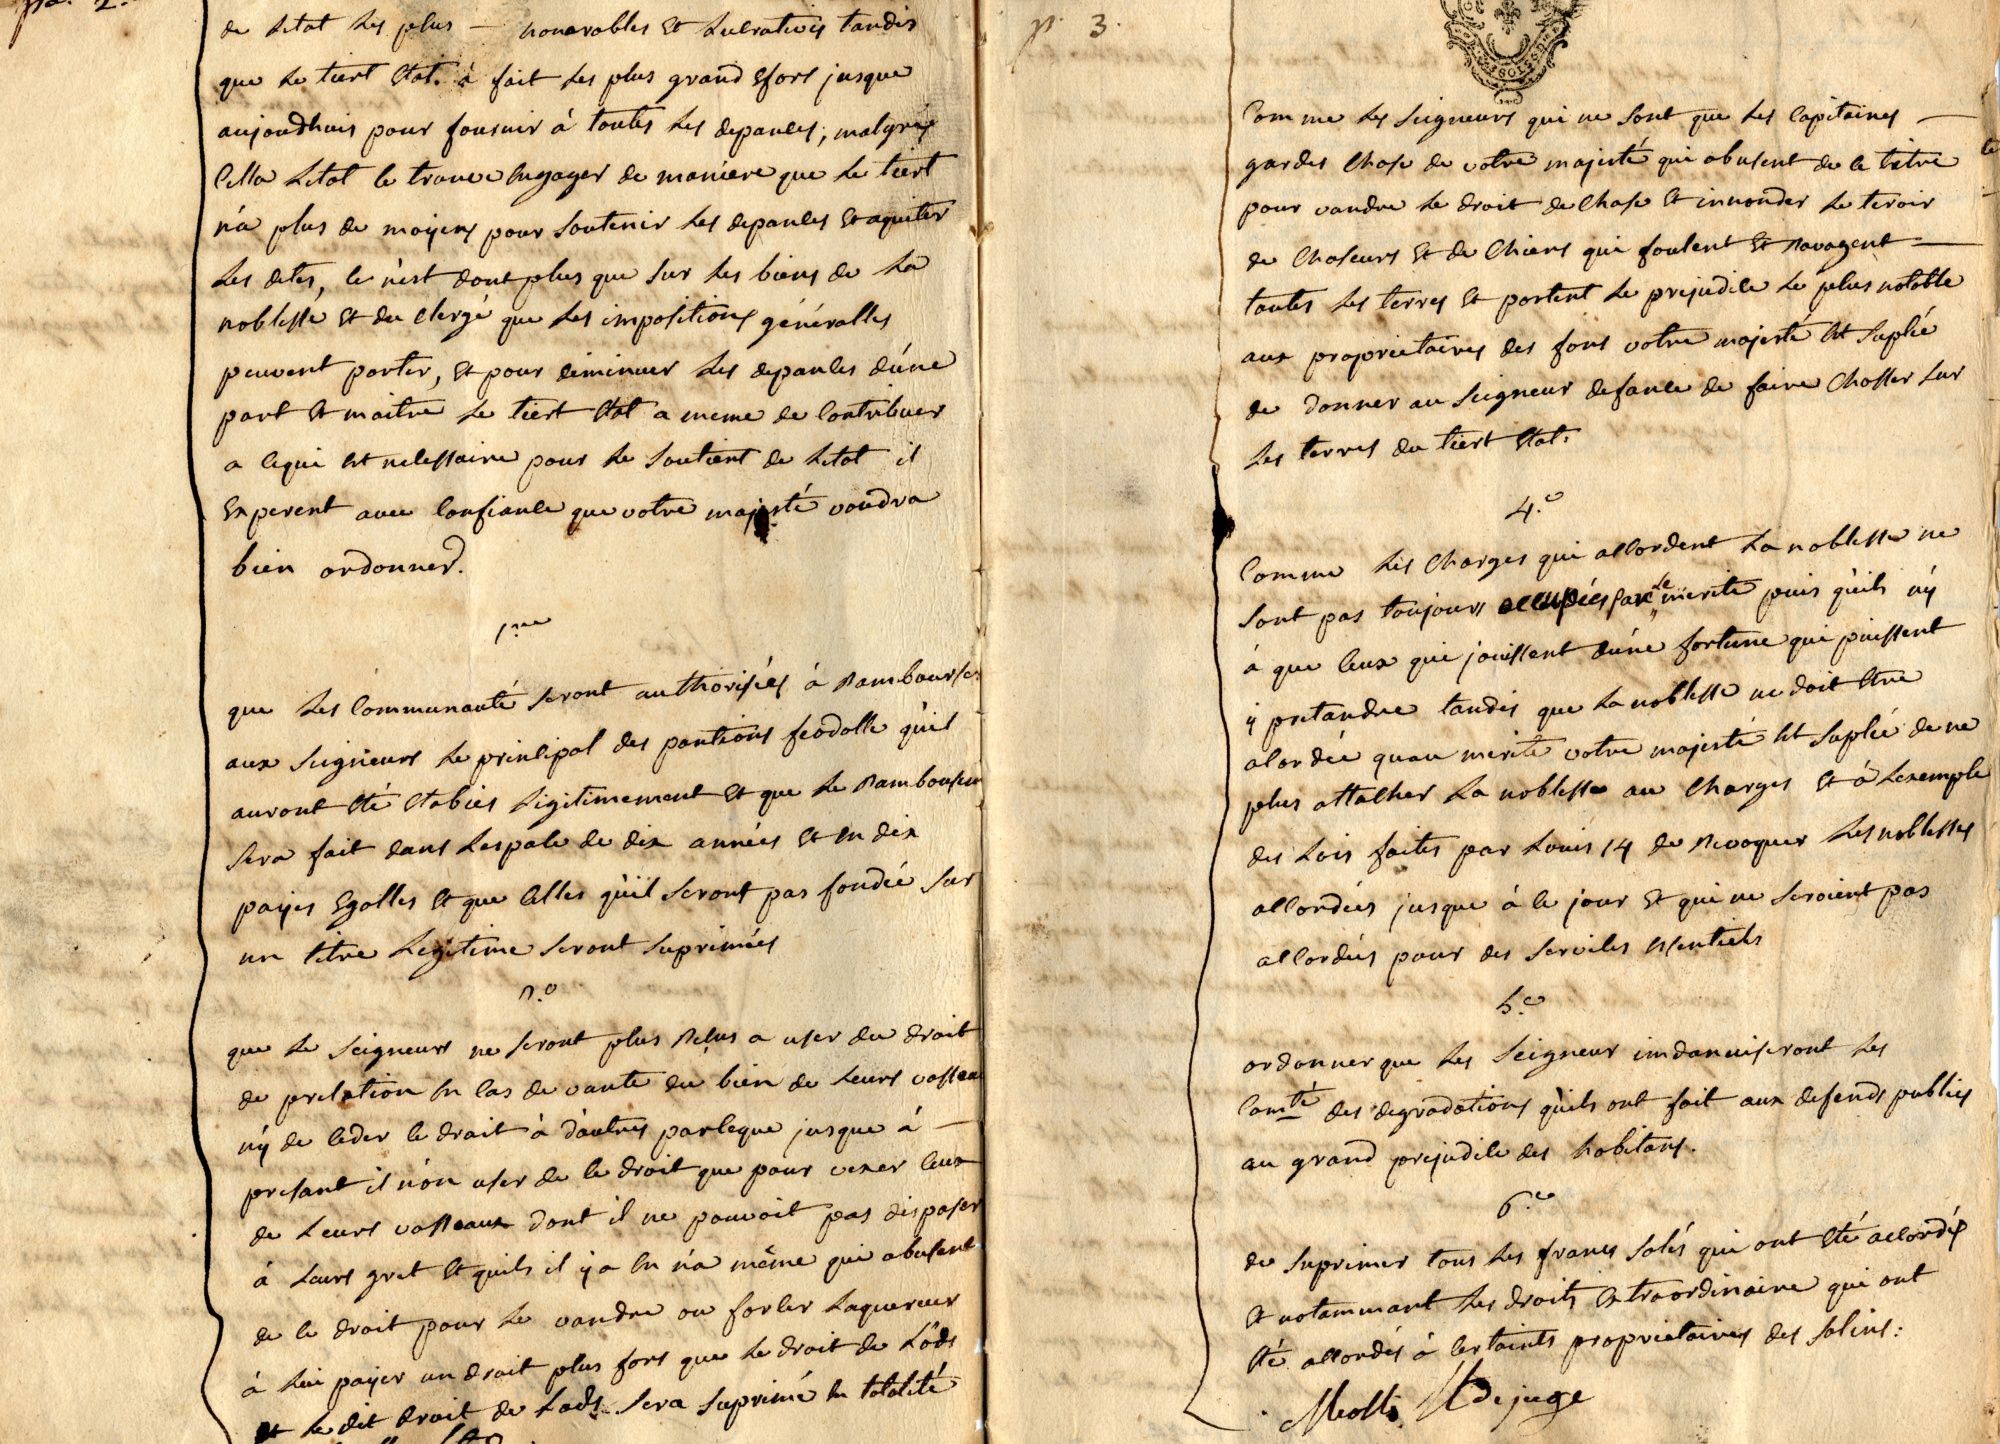 pa. 2.
de Letat Les plus — honorables et Lucratives tandis
que Le tiert Etat à fait Les plus grand Efors jusque
aujoudhuis pour fournir à toutes Les depances, malgrés
Cella Letat ce trouve Engager de maniere que Le tiert
n'a plus de moÿens pour Soutenir Les depances Et aquiter
Les detes, ce n'est dont plus que Sur Les biens de La
noblesse Et du Clergé que Les impositions généralles
peuvent porter, Et pour diminuer Les depances d'úne
part Et maitre Le tiert Etat a meme de Contribuer
a cequi Est necessaire pour Le Soutient de Letat il
Experent avec Confiance que votre majesté voudra
bien ordonner.
1.me
que Les Communauté Seront authorisées à Rambourser
aux Seigneurs Le principal des pantions feodalle qu'il
auront Eté Etabies Ligitimement Et que Le Rambousem
Sera fait dans Lespace de dix années Et En dix
paÿes Egalles Et que Celles qu'il Seront pas fondée Sur
un titre Legitime Seront Suprimées
2.e
que Le Seigneurs ne Seront plus Recus a user du droit
de prelation En Cas de vante du bien de Leurs vasseau
nÿ de Ceder Ce droit à d'autres parceque jusque à —
presant il n'on user de Ce droit que pour vexer Ceux
de Leurs vasseaux dont il ne pouvoit pas disposer
à Leurs gret Et quils il ÿ a En n'a même qui abusent
de Ce droit pour Le vandre ou forcer Laquereur
à Lui paÿer un droit plus fors que Le droit de Lóds
Et Le dit droit de Lods Sera Suprimé En totalité
p. 3.
Comme Les Seigneurs qui ne Sont que Les Capitaines —
gardes Chase de votre majesté qui abusent de Ce titre
pour vandre Le droit de Chase Et innonder Le teroir
de Chaseurs Et de Chiens qui foulent Et Ravagent —
toutes Les terres Et portent Le prejudice Le plus notable
aux proprietaires des fons votre majesté Est Suplié
de donner au Seigneur defance de faire Chasser Sur
Les terres du tiert Etat.
4.e
Comme Les Charges qui accordent La noblesse ne
Sont pas toujours occupées par le merite puis qu'ils nÿ
à que Ceux qui jouissent d'úne fortune qui puissent
ÿ pretandre tandis que La noblesse ne doit Etre
acordée quau merite votre majesté Est Suplié de ne
plus attacher La noblesse au Charges Et à Lexemple
des Lois faites par Louis 14 de Revoquer Les noblesses
accordées jusque à Ce jour Et qui ne Seroient pas
accordées pour des Services esentiels
5.e
ordonner que Les Seigneur imdanniseront Les
Comté des degradations qu'ils ont fait aux defends publics
au grand prejudice des habitans.
6.e
de Suprimer tous Les francs Salés qui ont Eté accordés
Et notammant Les droits Extraordinaire qui ont
Eté accordés à Certaints proprietaires des Salins.
Dejuge